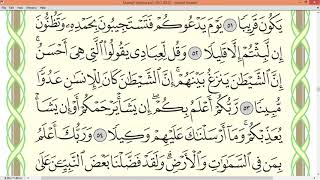 يَكُونَ قَرِيبًا ٥١ يَوْمَ يَدْعُوكُمْ فَتَسْتَجِيبُونَ بِحَمْدِهِۦ وَتَظُنُّونَ
إِن لَّبِثْتُمْ إِلَّا قَلِيلًا ٥٢ وَقُل لِّعِبَادِى يَقُولُوا۟ ٱلَّتِى هِىَ أَحْسَنُ ۚ
إِنَّ ٱلشَّيْطَـٰنَ يَنزَغُ بَيْنَهُمْ ۚ إِنَّ ٱلشَّيْطَـٰنَ كَانَ لِلْإِنسَـٰنِ عَدُوًّا
مُّبِينًا ٥٣ رَّبُّكُمْ أَعْلَمُ بِكُمْ ۖ إِن يَشَأْ يَرْحَمْكُمْ أَوْ إِن يَشَأْ
يُعَذِّبْكُمْ ۚ وَمَآ أَرْسَلْنَـٰكَ عَلَيْهِمْ وَكِيلًا ٥٤ وَرَبُّكَ أَعْلَمُ
بِمَن فِى ٱلسَّمَـٰوَٰتِ وَٱلْأَرْضِ ۗ وَلَقَدْ فَضَّلْنَا بَعْضَ ٱلنَّبِيِّـۧنَ عَلَىٰ